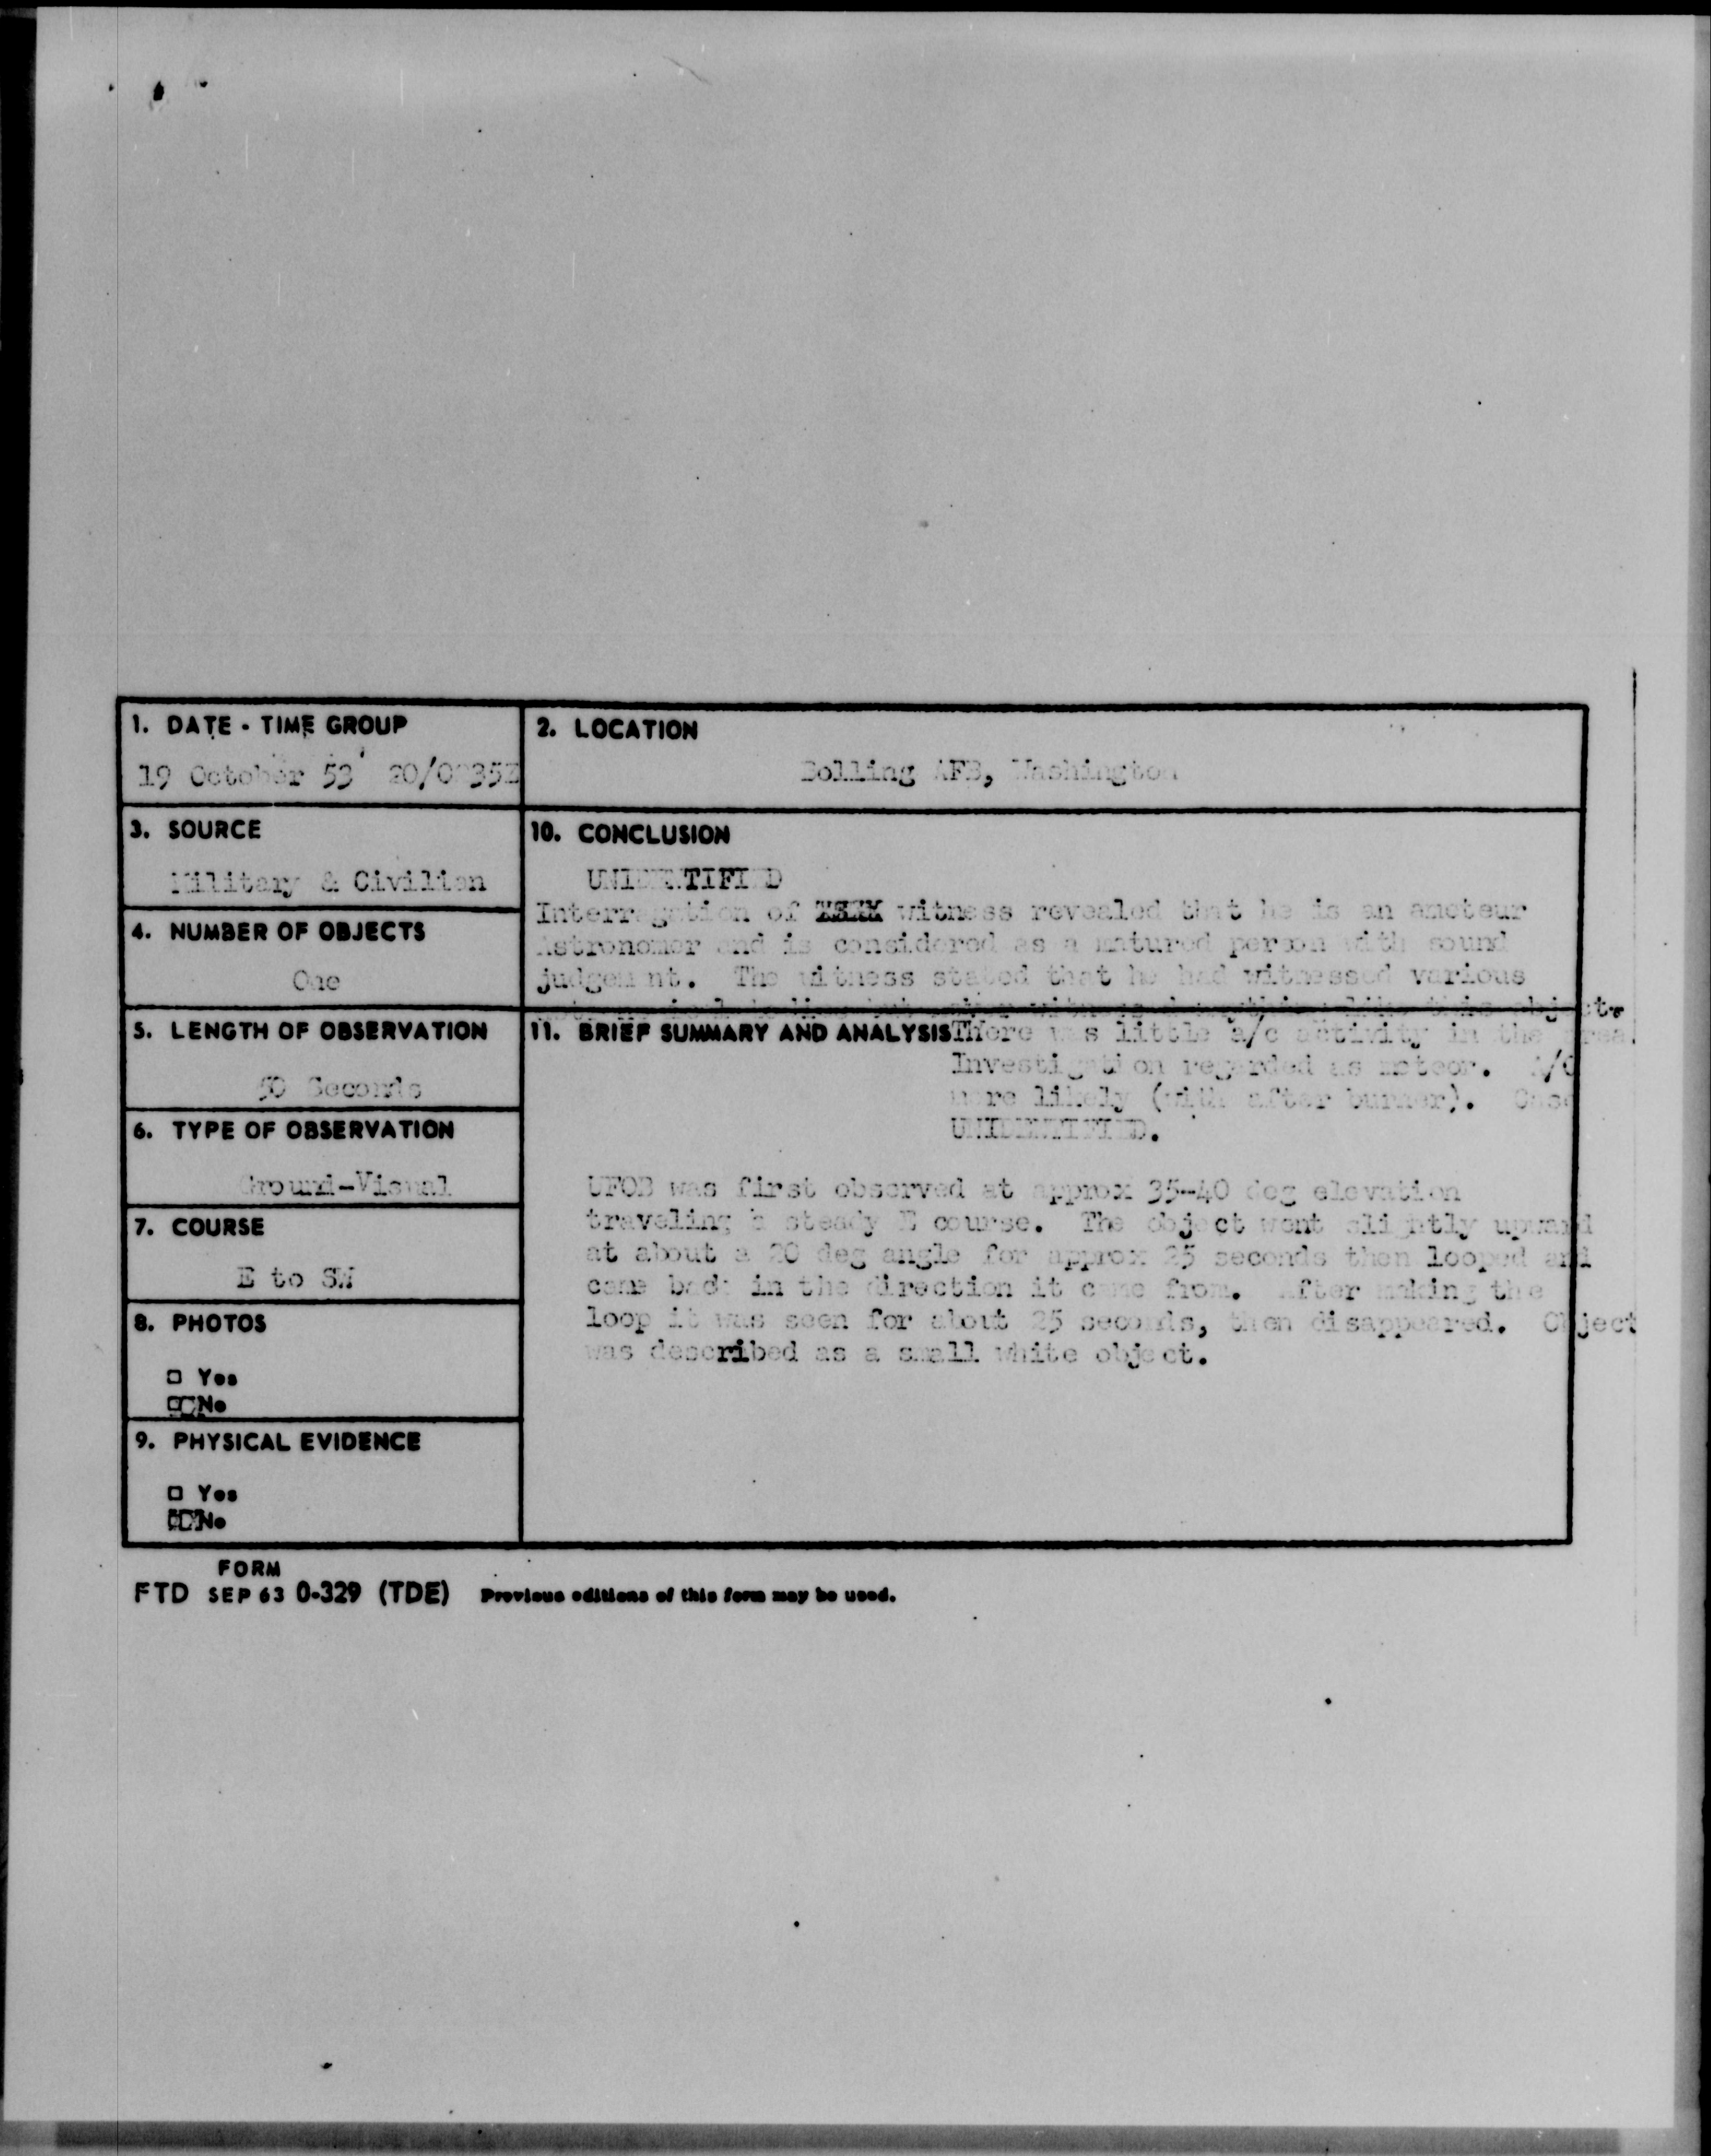 1. DATE - TIME GROUP
19 October 53 20/0035Z
2. LOCATION
Bolling AFB, Washington
3. SOURCE
Military & Civilian
10. CONCLUSION
UNIDENTIFIED
Interrogation of witness revealed that he is an amateur
Astronomer and is considered as a matured person with sound
judgement. The witness stated that he had witnessed various
but never witnessed anything like this object.
4. NUMBER OF OBJECTS
One
5. LENGTH OF OBSERVATION
50 Seconds
11. BRIEF SUMMARY AND ANALYSIS There was little a/c activity in the area.
Investigation regarded as meteor. A/C
more likely (with after burner). Case
UNIDENTIFIED.
UFOB was first observed at approx 35-40 deg elevation
traveling a steady E course. The object went slightly upward
at about a 20 deg angle for approx 25 seconds then looped and
came back in the direction it came from. After making the
loop it was seen for about 25 seconds, then disappeared. Object
was described as a small white object.
6. TYPE OF OBSERVATION
Ground-Visual
7. COURSE
E to SW
8. PHOTOS
□ Yes
□ No
9. PHYSICAL EVIDENCE
□ Yes
□ No
FORM
FTD SEP 63 0-329 (TDE) Previous editions of this form may be used.